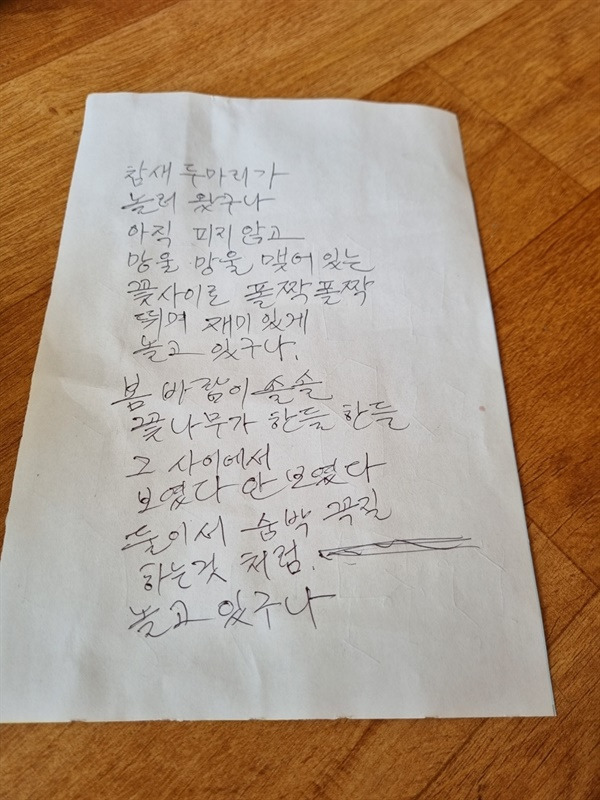 참새 두마리가
놀러 왔구나
아직 피지 않고
망울 망울 맺어 있는
꽃사이로 폴짝폴짝
뛰며 재미있게
놀고 있구나.
봄 바람이 솔솔
꽃나무가 한들 한들
그 사이에서
보였다 안 보였다
둘이서 숨박 꼭질
하는것 처럼.
놀고 있구나